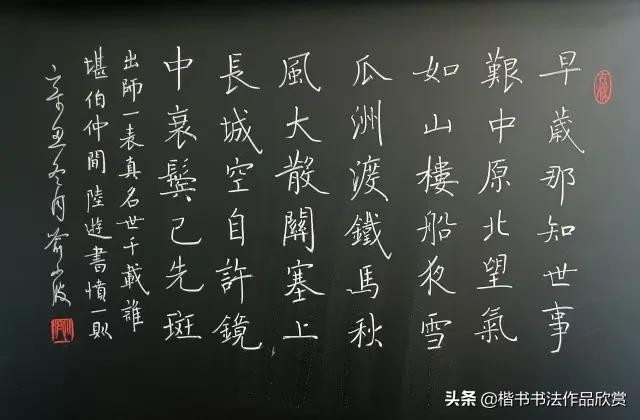 早歲那知世事
艱中原北望氣
如山樓船夜雪
瓜洲渡鐵馬秋
風大散關塞上
長城空自許鏡
中衰鬢已先斑
出師一表真名世千載誰
堪伯仲間陸遊書憤一則
辛丑冬月
头条 @楷书书法作品欣赏